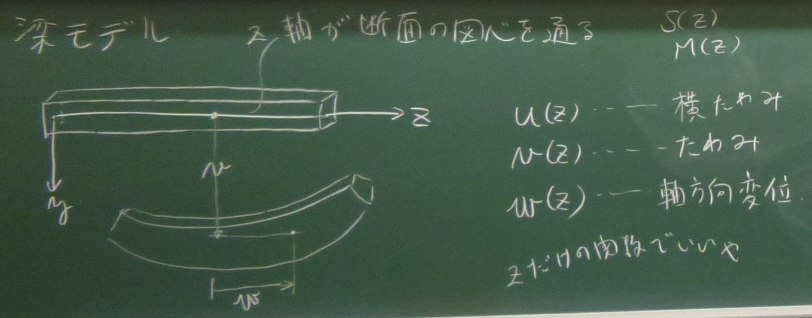 梁モデル
z軸が断面の図心を通る
S(z)
M(z)
z
y
v
w
u(z) ‥‥ 横たわみ
v(z) ‥‥ たわみ
w(z) ‥‥ 軸方向変位
zだけの関数でいいや